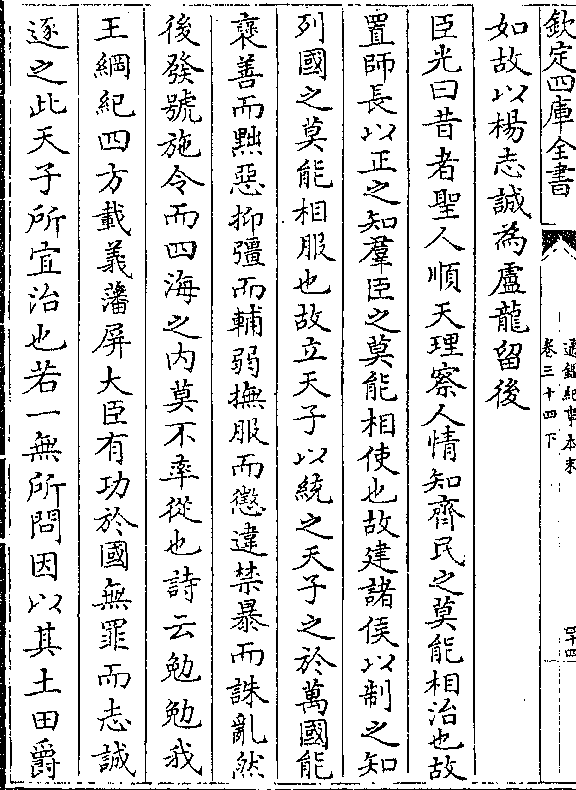 欽定四庫全書
通鑑紀事本末
卷三十四下
四十四
如故以楊志誠為盧龍留後
臣光曰昔者聖人順天理察人情知齊民之莫能相治也故
置師長以正之知羣臣之莫能相使也故建諸侯以制之知
列國之莫能相服也故立天子以統之天子之於萬國能
襃善而黜惡抑彊而輔弱撫服而懲違禁暴而誅亂然
後發號施令而四海之内莫不率從也詩云勉勉我
王綱紀四方載義藩屏大臣有功於國無罪而志誠
逐之此天子所宜治也若一無所問因以其土田爵